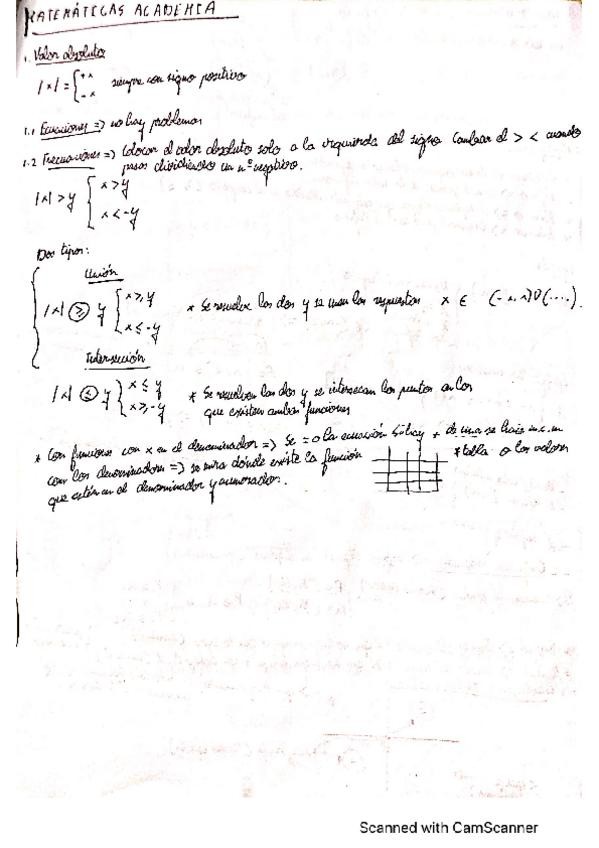 MATEMÁTICAS ACADEMIA
1. Valor absoluto
|x| = { +x siempre con signo positivo
-x
1.1 Ecuaciones => no hay problemas
1.2 Inecuaciones => Colocar el valor absoluto solo a la izquierda del signo Cambiar el > < cuando
pasas dividiendo un nº negativo.
|x| > y { x > y
x < -y
Dos tipos:
Unión
|x| ≥ y { x ≥ y
x ≤ -y
* Se resuelve los dos y se unen las respuestas x ∈ (- x, x) U (....).
Intersección
|x| ≤ y } x ≤ y
x ≥ -y
* Se resuelven los dos y se intersecan los puntos en los
que existen ambas funciones
* Con funciones con x en el denominador => Se = 0 la ecuación Si hay + de una se hace m.c.m
con los denominadores => se mira dónde existe la función * tabla o los valores
que estén en el denominador y numerador.
Scanned with CamScanner